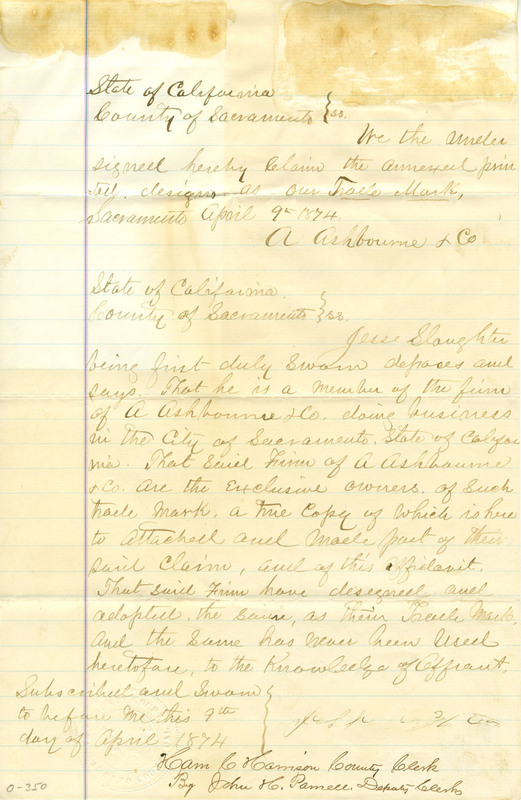 State of California
County of Sacramento } ss.
We the under
signed hereby Claim the annexed prin
ted designs as our Trade Mark,
Sacramento April 9th 1874.
A Ashbourne & Co
State of California
County of Sacramento } ss.
Jesse Slaughter
being first duly Sworn deposes and
says. That he is a member of the firm
of A Ashbourne & Co. doing business
in the City of Sacramento, State of Califor
nia. That said Firm of A Ashbourne
& Co. are the Exclusive owners of Such
trade mark. a true Copy of which is here
to attached and made part of their
said claim, and of this affidavit.
That said Firm have designed and
adopted the same, as their Trade Mark,
And the Same has never been Used
heretofore, to the Knowledge of Affiant.
Subscribed and Sworn
to before me this 9th
day of April 1874
Ham C Harrison County Clerk
By John H. Parnell. Deputy Clerk
0-350